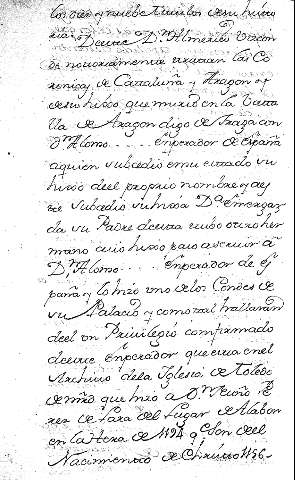 los diez y nueve titulos de su histo
ria. Deeste Dn Almerico Vizcon
de notoriamente tratan las Co
ronicas de Cataluña y Aragon et
de su hijo que murio en la Bata
lla de Aragon digo de Fraga con
Dn Alonso .... Emperador de España
a quien subcedio en su estado su
hijo deel proprio nombre y a es
te subcedio su hija Da Ermengar
da su Padre de esta tubo otro her
mano cuio hijo paso a servir á
Dn Alonso .... Emperador de Es
paña y lo hizo uno de los Condes de
su Palacio y como tal hallaran
deel un Privilegio confirmado
deeste Emperador que esta en el
Archivo de la Iglesia de Toledo
que hizo a Dn
rez de Lara del Lugar de Alabon
en la Hera de 1194 y son deel
Nacimiento de Christo 1156.